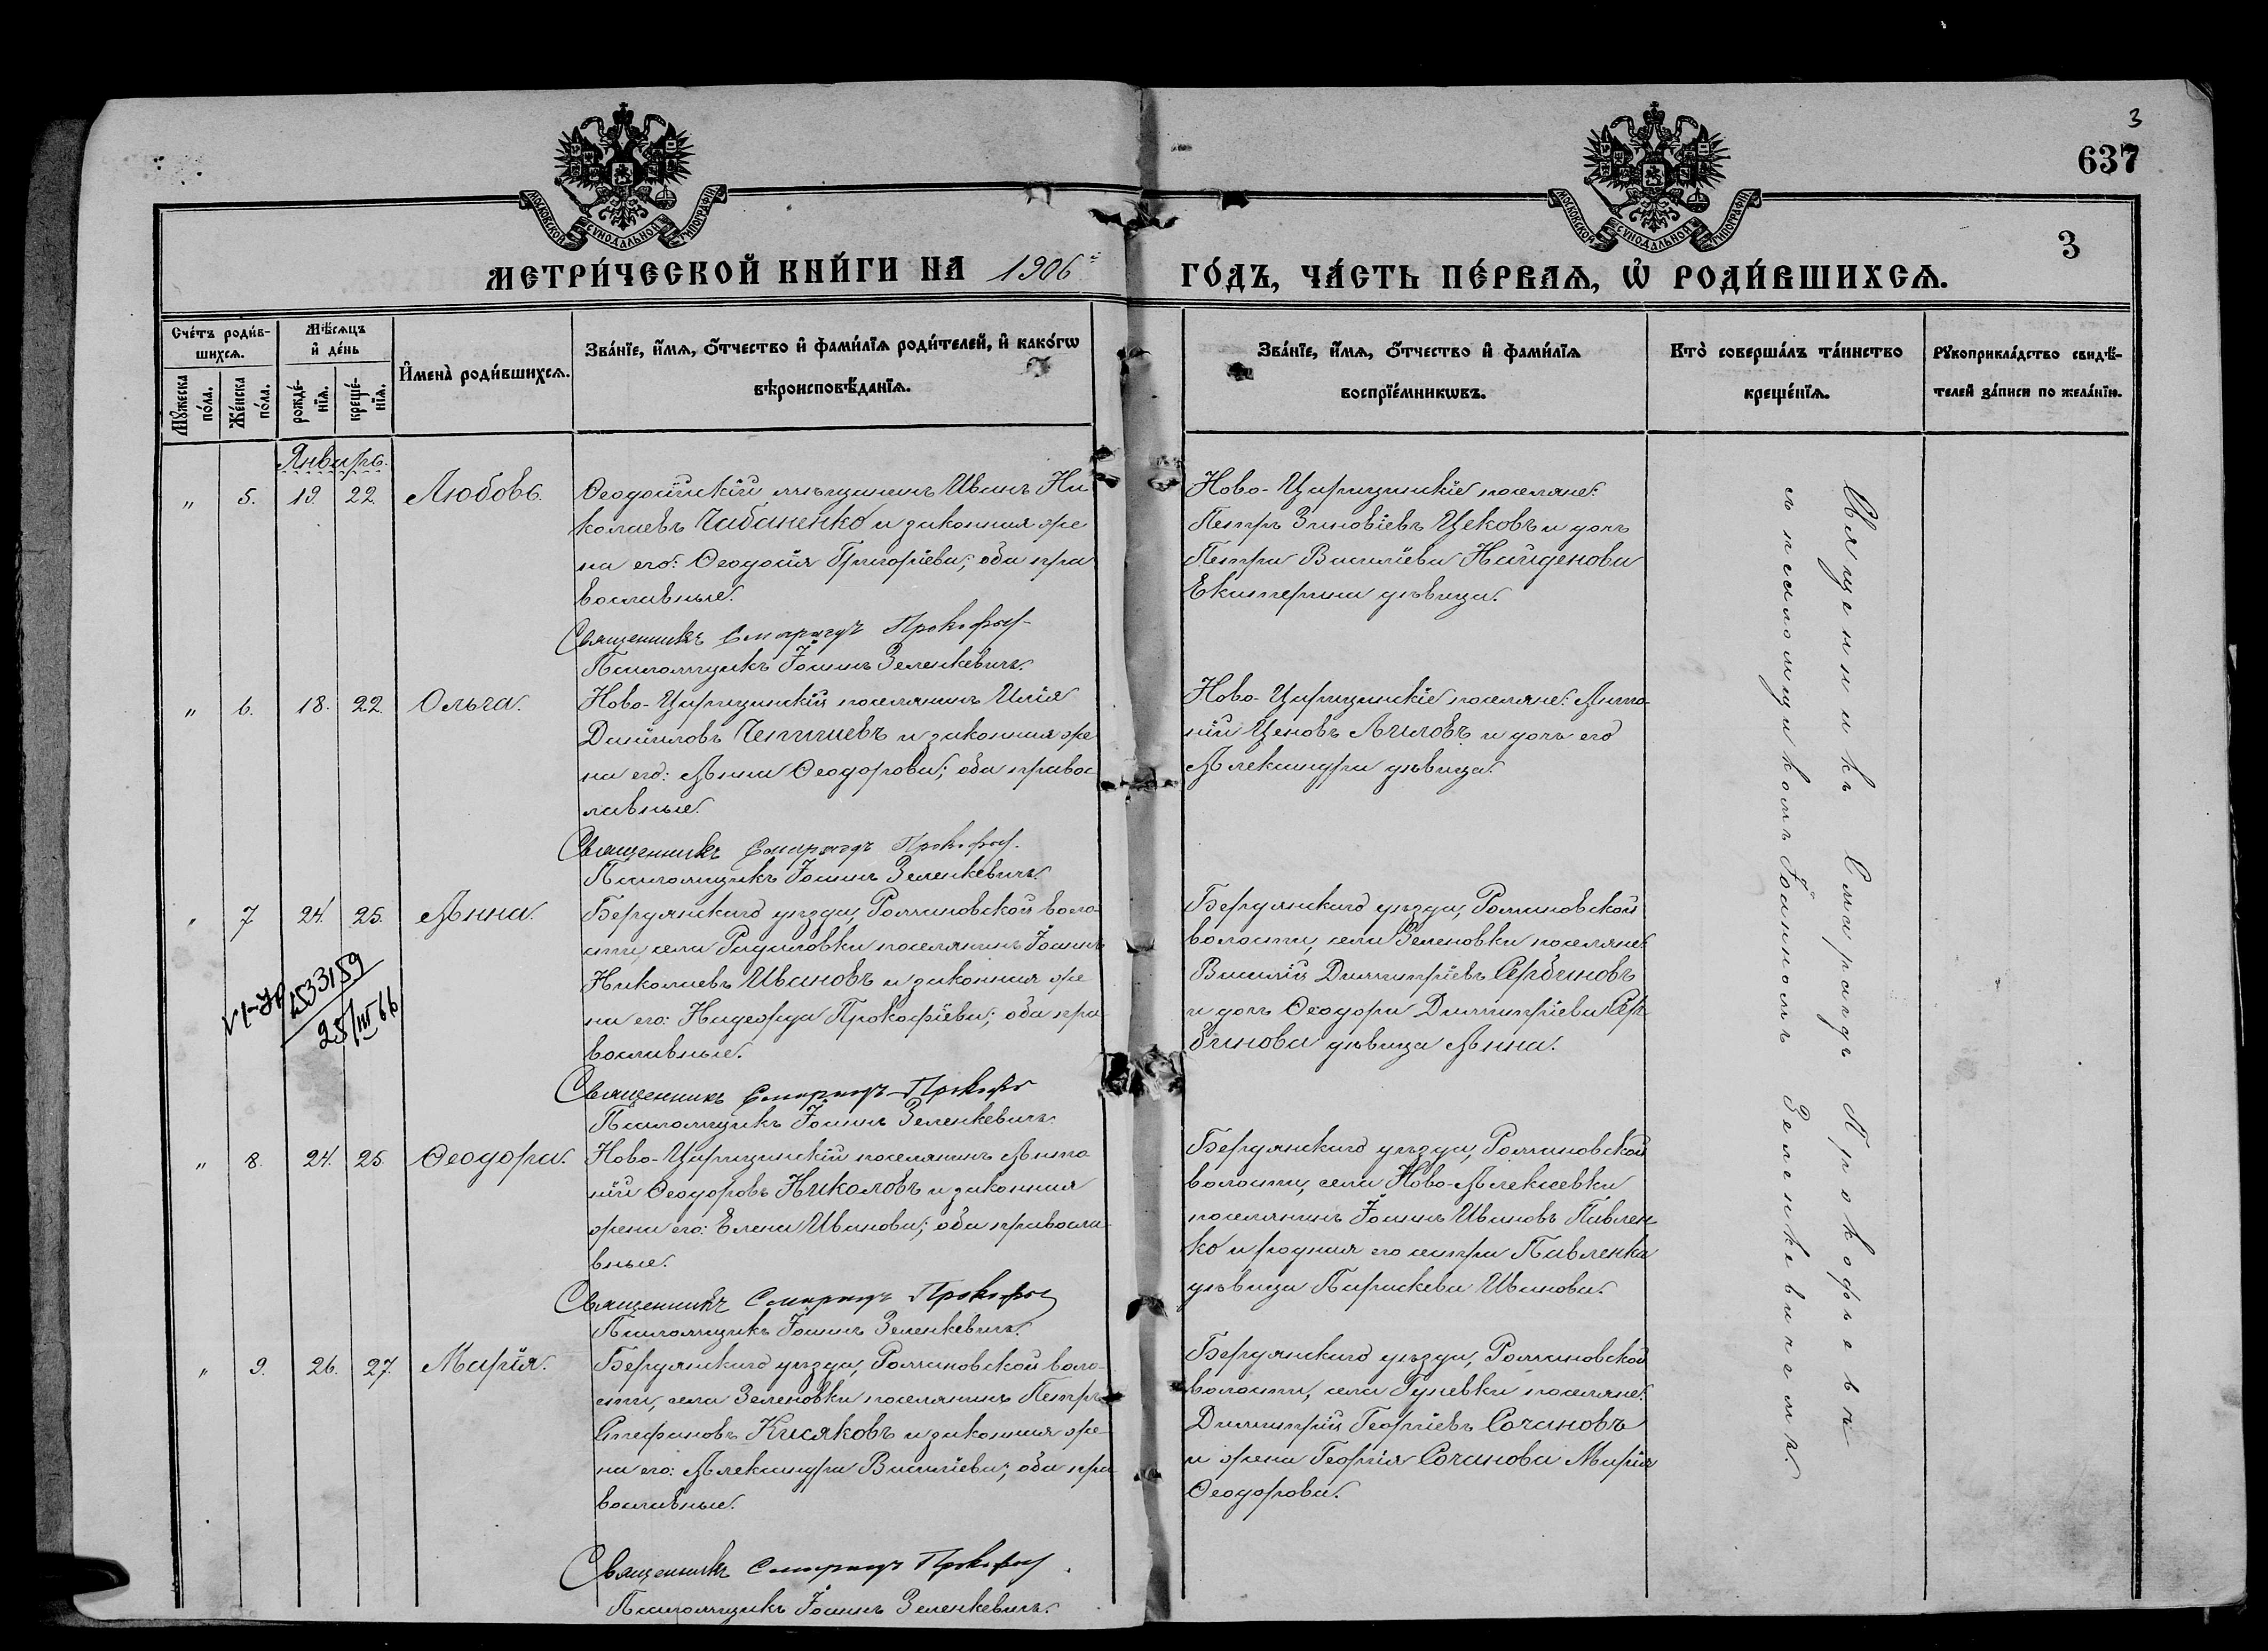 3
637
3
МОСКОВСКОЙ СѴНОДАЛЬНОЙ ТИПОГРАФІИ
МОСКОВСКОЙ СѴНОДАЛЬНОЙ ТИПОГРАФІИ
МЕТРИ́ЧЕСКОЙ КНИ́ГИ НА 1906й ГО́ДЪ, ЧА́СТЬ ПЕ́РВАѦ, Ѡ҆ РОДИ́ВШИХСѦ.
Сче́тъ роди́в-
шихсѧ.
Мꙋ́жеска
по́ла.
Же́нска
по́ла.
Мѣ́сѧцъ
и҆ де́нь
рожде́-
нїѧ.
креще́-
нїѧ.
И҆мена̀ роди́вшихсѧ.
Зва́нїе, и҆́мѧ, ѻ҆́тчество и҆ фами́лїѧ роди́телей, и҆ како́гѡ
вѣроисповѣ́данїѧ.
Зва́нїе, и҆́мѧ, ѻ҆́тчество и҆ фами́лїѧ
воспрїе́мникѡвъ.
Кто̀ соверша́лъ та́инство
креще́нїѧ.
Рꙋкоприкла́дство свидѣ́-
телей за́писи по жела́нїю.
Январь.
„ 5. 19. 22. Любовь.
Ѳеодосійскій мѣщанинъ Иванъ Ни
колаевъ Чабаненко и законная же
на его: Ѳеодосія Григоріева; оба пра
вославные.
Священникъ Смарагдъ Прокофьев
Псаломщикъ Іоаннъ Зеленкевичъ.
Ново-Царицинскіе поселяне:
Петръ Зиновіевъ Цековъ и дочь
Петра Василіева Найденова
Екатерина дѣвица.
„ 6. 18. 22. Ольга.
Ново-Царицинскій поселянинъ Илія
Даніиловъ Чепишевъ и законная же
на его: Анна Ѳеодорова; оба правос
лавные.
Священникъ Смарагдъ Прокофьев.
Псаломщикъ Іоаннъ Зеленкевичъ.
Ново-Царицинскіе поселяне: Анто-
ній Ценовъ Ачловъ и дочь его
Александра дѣвица.
„ 7 24. 25. Анна.
Бердянскаго уѣзда, Романовской воло-
сти, села Радиловки поселянинъ Іоаннъ
Николаевъ Ивановъ и законная же
на его: Надежда Прокофіева; оба пра-
вославные.
Священникъ Смарагдъ Прокофьев
Псаломщикъ Іоаннъ Зеленкевичъ.
Бердянскаго уѣзда, Романовской
волости, села Зеленовки поселяне:
Василій Димитріевъ Сербиновъ
и дочь Ѳеодора Димитріева Сер
бинова дѣвица Анна.
533159
25/III 66
„ 8. 24. 25. Ѳеодора.
Ново-Царицинскій поселянинъ Анто
ній Ѳеодоровъ Николовъ и законная
жена его: Елена Иванова; оба правосла-
вные.
Священникъ Смарагдъ Прокофьев
Псаломщикъ Іоаннъ Зеленкевичъ.
Бердянскаго уѣзда, Романовской
волости, села Ново-Алексеевки
поселянинъ Іоаннъ Ивановъ Павлен
ко и родная его сестра Павленка
дѣвица Параскева Иванова.
„ 9. 26. 27. Марія.
Бердянскаго уѣзда, Романовской воло-
сти, села Зеленовки поселянинъ Петръ
Стефановъ Кисяковъ и законная же
на его: Александра Василіева; оба пра
вославные.
Священникъ Смарагдъ Прокофьев.
Псаломщикъ Іоаннъ Зеленкевичъ.
Бердянскаго уѣзда, Романовской
волости, села Гуневки поселяне:
Димитрій Георгіевъ Сочановъ
и жена Георгія Сочанова Марія
Ѳеодорова.
Священникъ Смарагдъ Прокофьевъ
съ псаломщикомъ Іоанномъ Зеленкевичемъ.